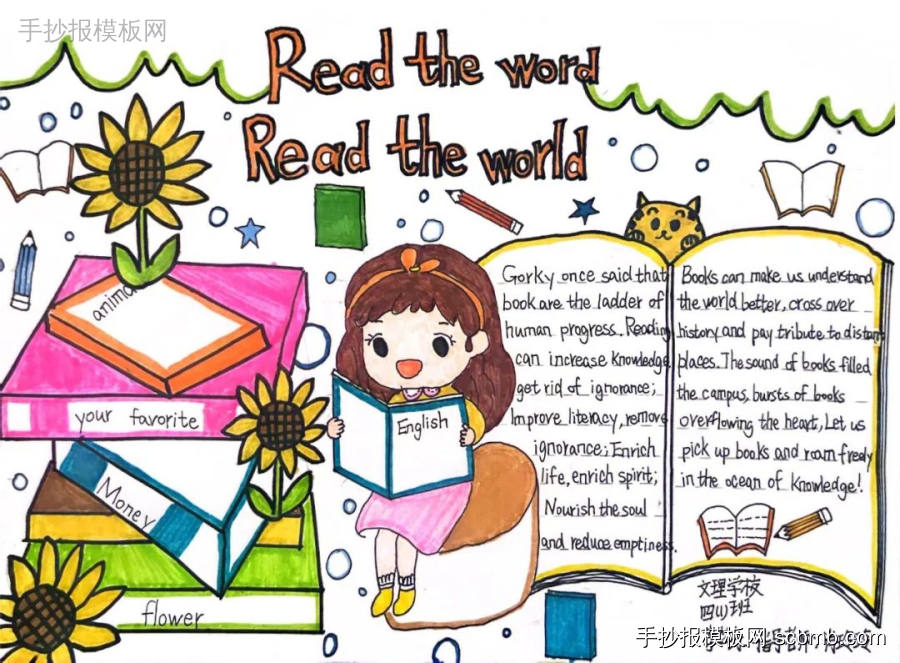 手抄报模板网
Read the word
Read the world
animal
your favorite
Money
flower
English
Gorky once said that
book are the ladder of
human progress. Reading
can increase knowledge,
get rid of ignorance;
Improve literacy, remove
ignorance; Enrich
life, enrich spirit;
Nourish the soul
and reduce emptiness.
Books can make us understand
the world better, cross over
history and pay tribute to distant
places. The sound of books filled
the campus, bursts of books
overflowing the heart, Let us
pick up books and roam freely
in the ocean of knowledge!
文理学校
四(1)班
手抄报模板网-scbmb.com